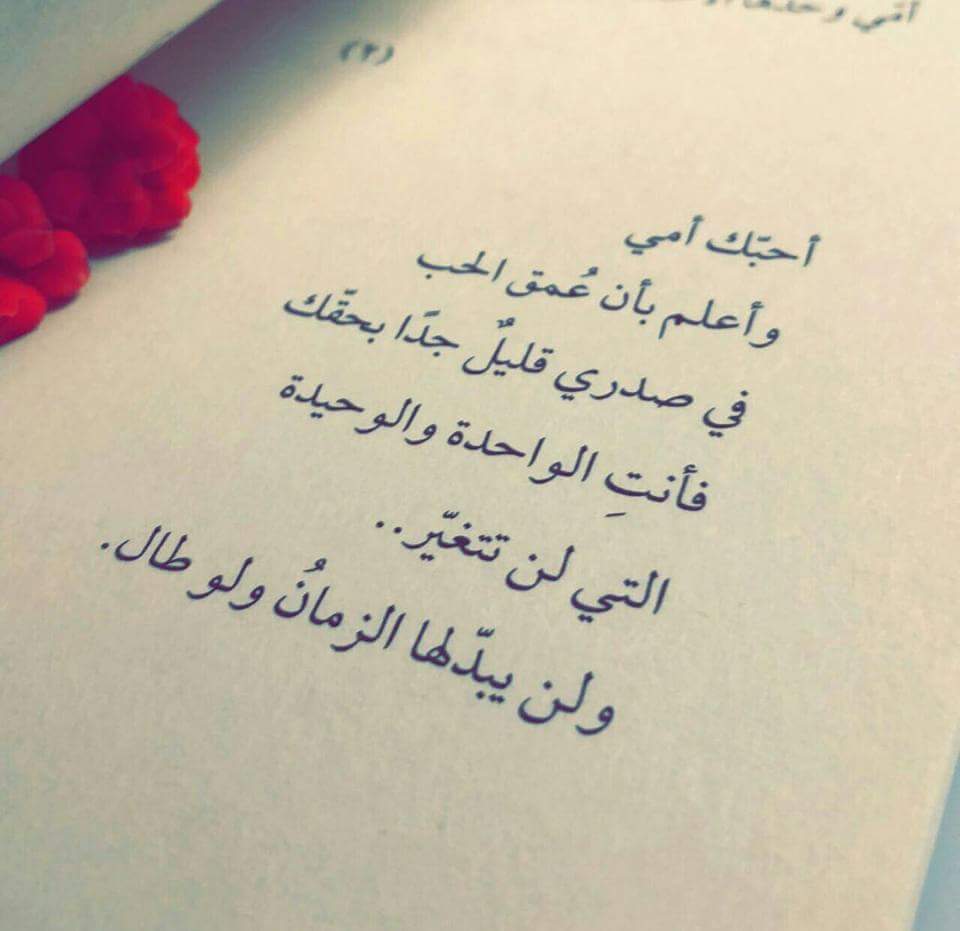 أمي وحدها
(٢)
أحبّك أمي
وأعلم بأن عُمق الحب
في صدري قليلٌ جدًا بحقّك
فأنتِ الواحدة والوحيدة
التي لن تتغيّر..
ولن يبدّلها الزمانُ ولو طال.